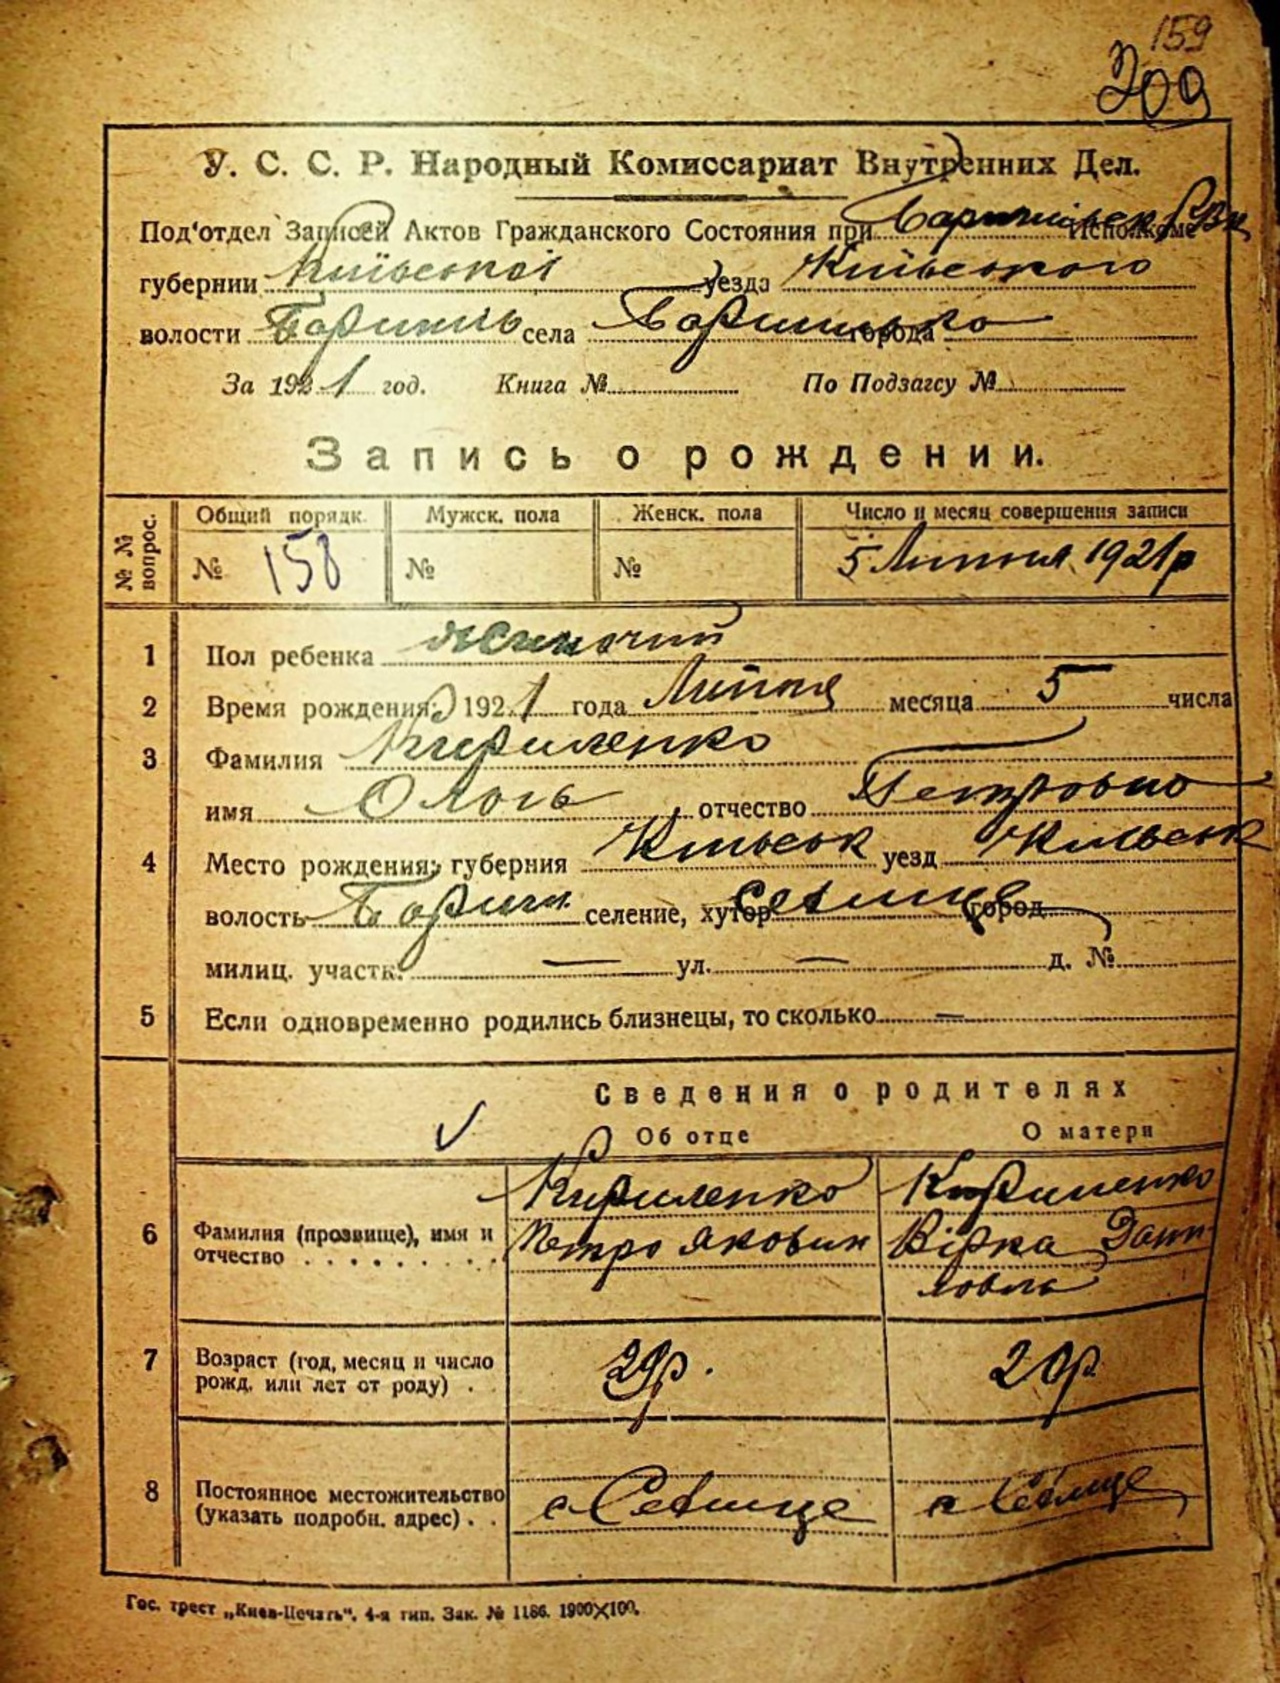 159
209
У. С. С. Р. Народный Комиссариат Внутренних Дел.
Под'отдел Записей Актов Гражданского Состояния при Исполкоме
губернии Київської уезда Київського
волости Баришль села города
За 1921 год. Книга № По Подзагсу №
Запись о рождении.
№ № вопрос. Общий порядк. Мужск. пола Женск. пола Число и месяц совершения записи
№ 158 № № 5 Липня 1921 р
1 Пол ребенка жиночий
2 Время рождения: 1921 года Липня месяца 5 числа
3 Фамилия Кириленко
имя Ольга отчество Петровна
4 Место рождения: губерния Київськ уезд Київськ
волость Бариш селение, хутор Селище город
милиц. участк. — ул. — д. №
5 Если одновременно родились близнецы, то сколько —
Сведения о родителях
Об отце О матери
Кириленко Кириленко
6 Фамилия (прозвище), имя и Петро Якович Вірка Дани-
отчество . . . . . . . . . ловна
7 Возраст (год, месяц и число 29 р. 20 р
рожд. или лет от роду) .
8 Постоянное местожительство с Селище с Селище
(указать подробн. адрес) . .
Гос. трест „Киев-Печать“. 4-я тип. Зак. № 1186. 1900×100.